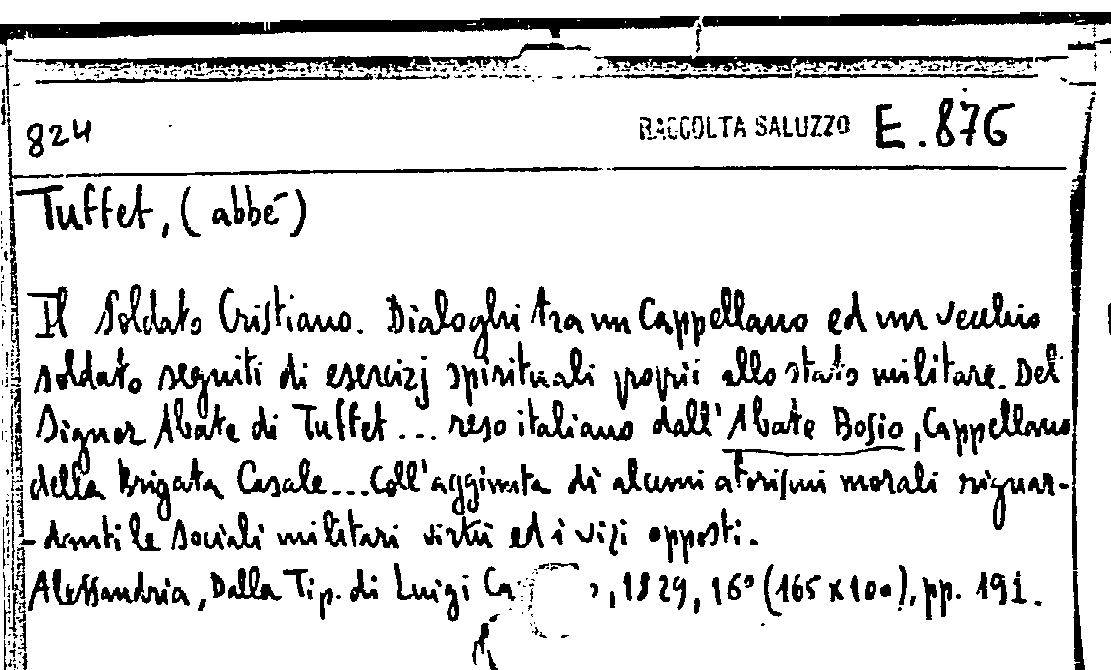 824
RACCOLTA SALUZZO E.876
Tuffet, (abbé)
Il Soldato Cristiano. Dialoghi tra un Cappellano ed un vecchio
soldato seguiti di esercizj spirituali proprii allo stato militare. Del
Signor Abate di Tuffet... reso italiano dall'Abate Bosio, Cappellano
della Brigata Casale... Coll'aggiunta di alcuni aforismi morali riguar-
-danti le sociali militari virtù ed i vizi opposti.
Alessandria, Dalla Tip. di Luigi , 1829, 16° (165 x 100), pp. 191.